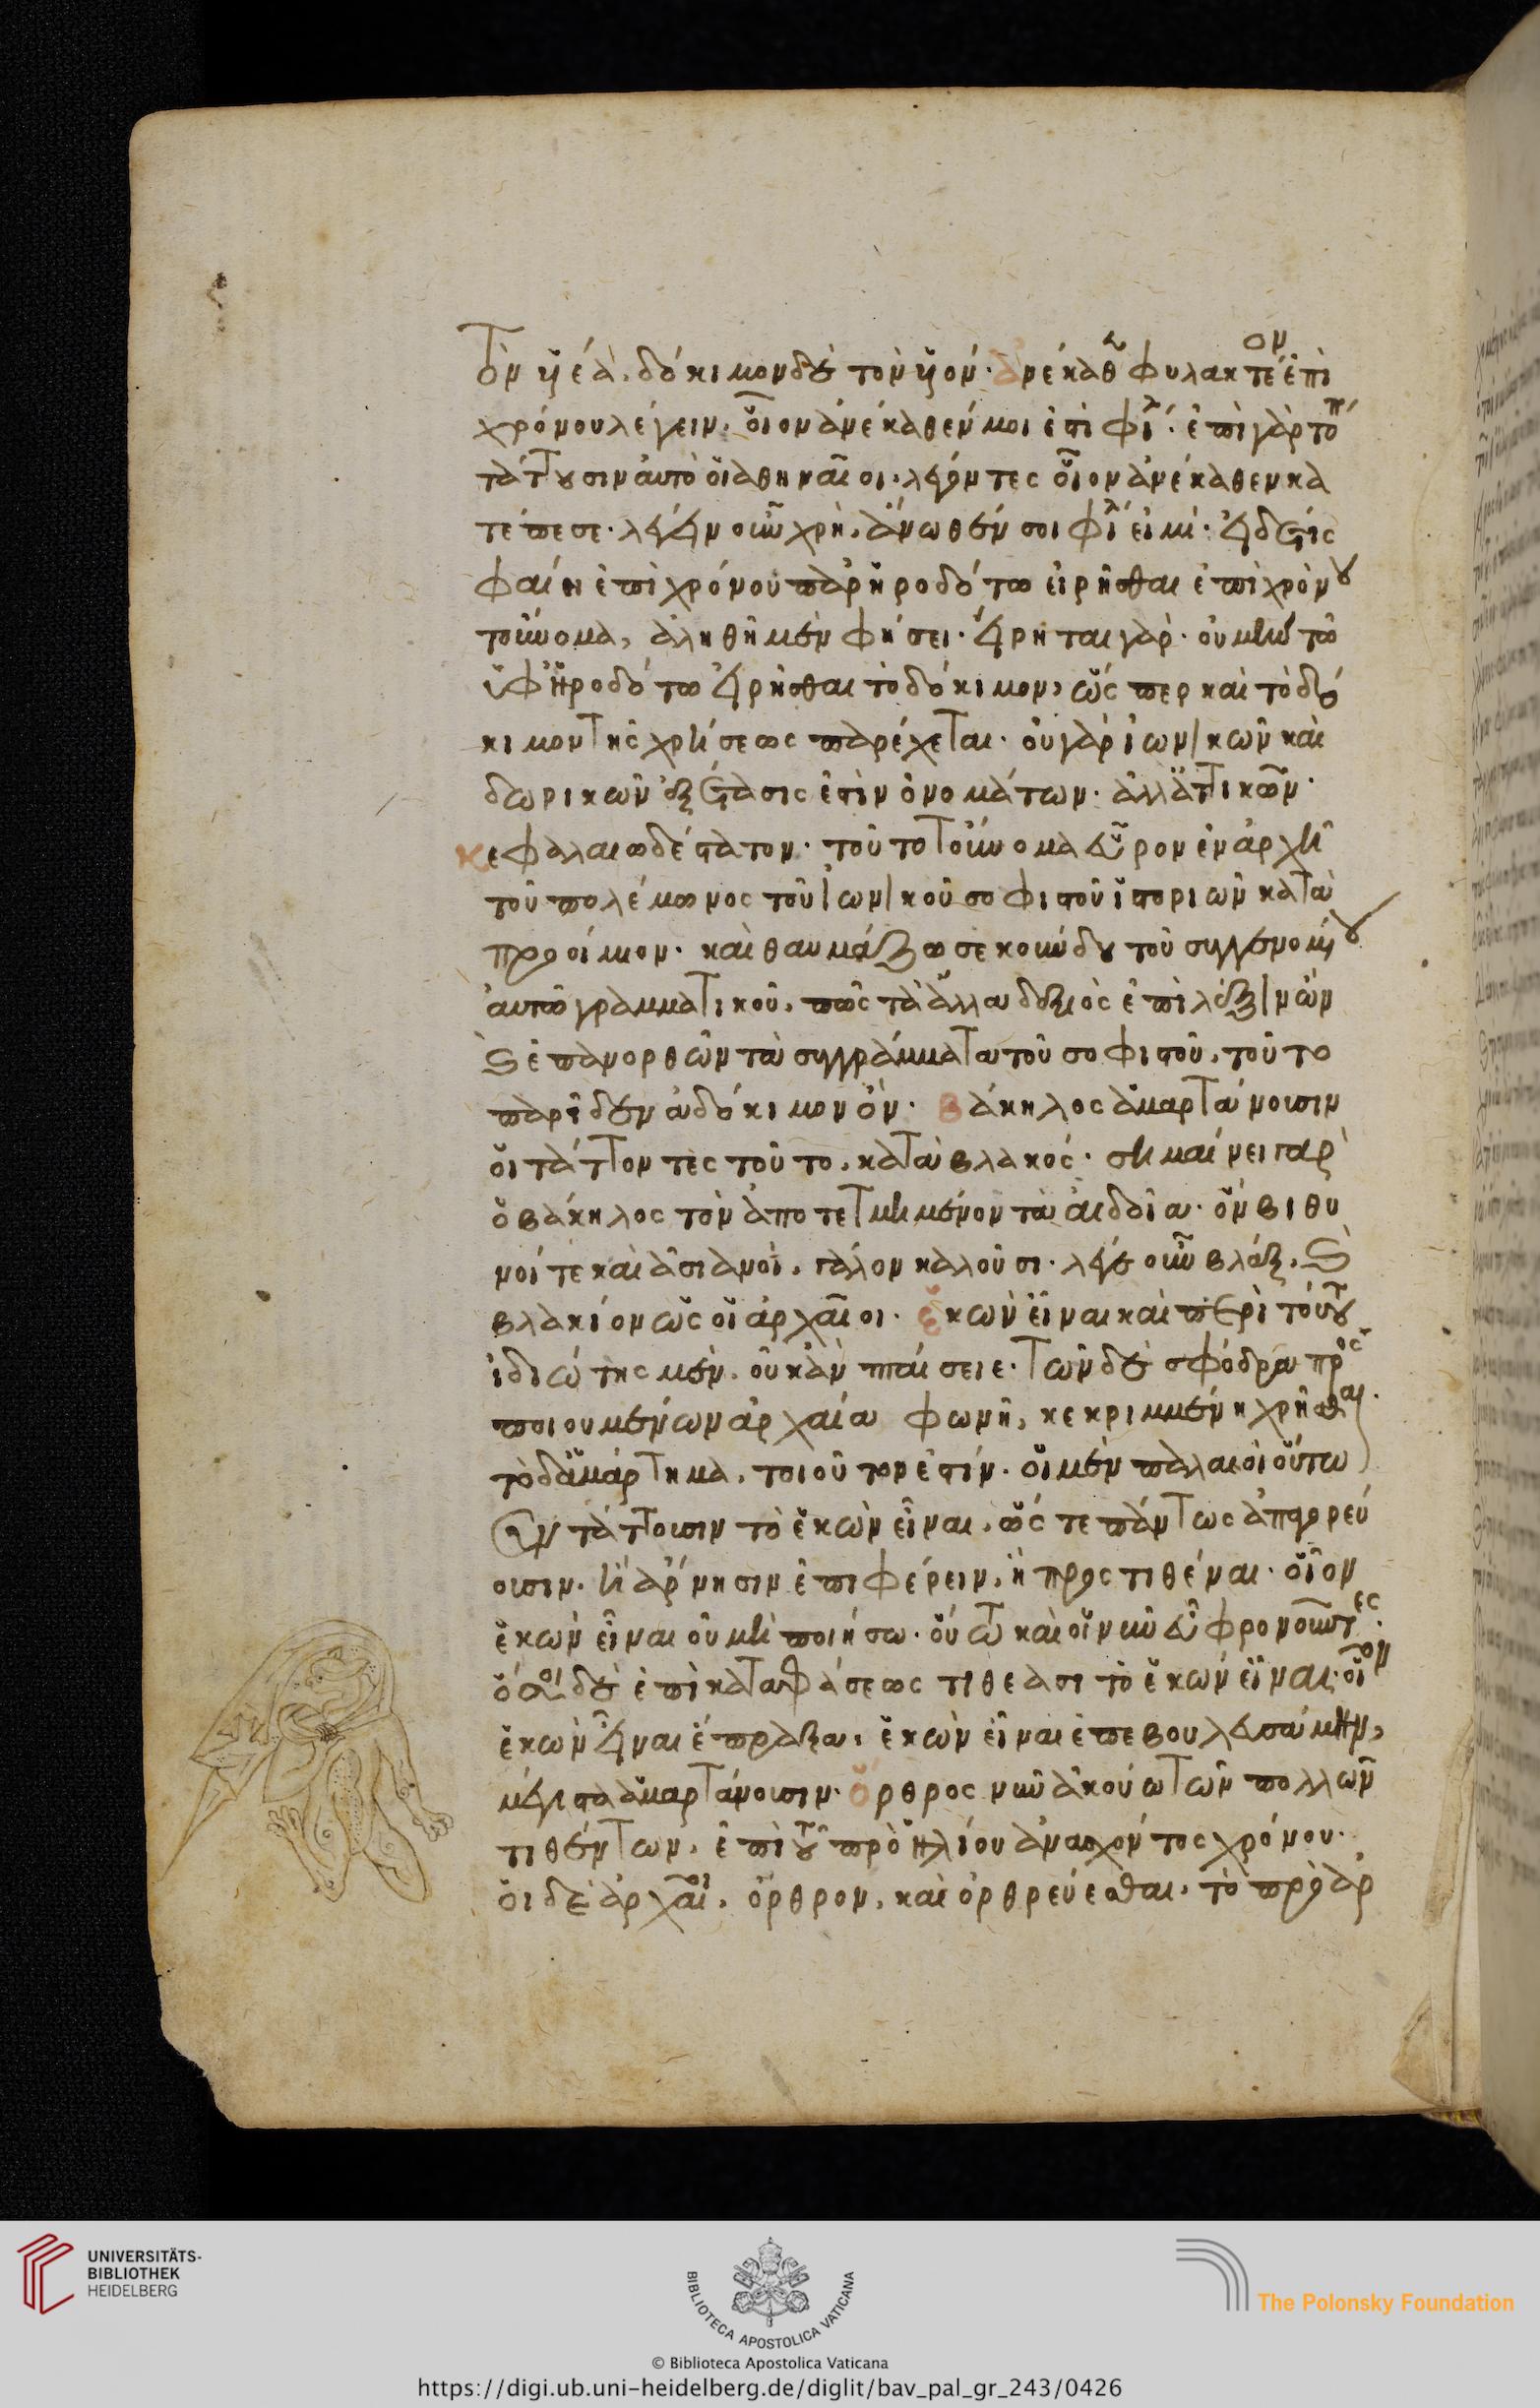 τὸν υἱέα, δόκιμον δὲ τὸν υἱόν. ἀνέκαθεν φυλακτέον ἐπὶ
χρόνου λέγειν. οἷον ἀνέκαθέν μοι ἐστὶ φίλος. ἐπὶ γὰρ τόπου
τάττουσιν αὐτὸ οἱ ἀθηναῖοι. λέγοντες οἷον ἀνέκαθεν κα
τέπεσε. λέγειν οὖν χρὴ, ἄνωθέν σοι φίλος εἰμί. εἰ δέ τις
φαίη ἐπὶ χρόνου παρ ἡροδότω εἰρῆσθαι ἐπὶ χρόνου
τοὔνομα, ἀληθῆ μὲν φήσει. εἴρηται γάρ. οὐ μὴν τῶ
ὑφ ἡροδότω εἰρῆσθαι τὸ δόκιμον, ὥς περ καὶ τὸ δό
κιμον τῆς χρήσεως παρέχεται. οὐ γὰρ ἰωνικῶν καὶ
δωρικῶν ἐξέτασις ἐστὶν ὀνομάτων. ἀλλ ἀττικῶν.
κεφαλαιωδέστατον. τοῦτο τοὔνομα εὗρον ἐν ἀρχῆ
τοῦ πολέμωνος τοῦ ἰωνικοῦ σοφιστοῦ ἱστοριῶν κατὰ
προοίμιον. καὶ θαυμάζω σεκούνδου τοῦ συγγενομένου
αὐτῶ γραμματικοῦ, πῶς τὰ ἄλλα δεξιὸς ἐπὶ λέξιν ὢν
καὶ ἐπανορθῶν τὰ συγγράμματα τοῦ σοφιστοῦ, τοῦτο
παρῖδεν ἀδόκιμον ὄν. βάκηλος ἁμαρτάνουσιν
οἱ τάττοντες τοῦτο, κατὰ βλακός. σημαίνει γὰρ
ὁ βάκηλος τὸν ἀποτετμημένον τὰ αἰδοῖα. ὃν βιθυ
νοί τε καὶ ἀσιανοὶ, γάλον καλοῦσι. λέγε οὖν βλὰξ, καὶ
βλακίον ὡς οἱ ἀρχαῖοι. ἑκὼν εἶναι καὶ περὶ τούτου
ἰδιώτης μὲν, οὐκ ἂν πταίσειε. τῶν δὲ σφόδρα προσ
ποιουμένων ἀρχαία φωνῆ, κεκριμμένη χρῆσθαι.
τὸ δ ἁμάρτημα, τοιοῦτον ἐστίν. οἱ μὲν παλαιοὶ οὕτω
συντάττουσιν τὸ ἑκὼν εἶναι, ὥς τε πάντως ἀπαγορεύ
ουσιν. ἢ ἄρνησιν ἐπιφέρειν, ἢ προςτιθέναι. οἷον
ἑκὼν εἶναι οὐ μὴ ποιήσω. οὕτω καὶ οἱ νῦν εὖ φρονοῦντες.
ὅσοι δὲ ἐπὶ καταφάσεως τιθέασι τὸ ἑκὼν εἶναι. οἷον
ἑκὼν εἶναι ἔπραξα, ἑκὼν εἶναι ἐπεβουλευσάμην,
μέγιστα ἁμαρτάνουσιν. ὄρθρος νῦν ἀκούω τῶν πολλῶν
τιθέντων, ἐπὶ τοῦ πρὸ ἡλίου ἀνασχόντος χρόνου.
οἱ δὲ ἀρχαῖοι, ὄρθρον, καὶ ὀρθρεύεσθαι, τὸ πρὸ ἀρ
UNIVERSITÄTS-
BIBLIOTHEK
HEIDELBERG
BIBLIOTECA APOSTOLICA VATICANA
The Polonsky Foundation
© Biblioteca Apostolica Vaticana
https://digi.ub.uni-heidelberg.de/diglit/bav_pal_gr_243/0426